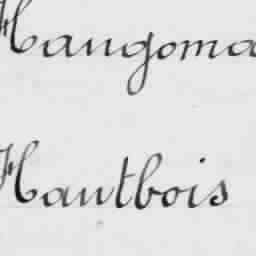 Haugoma
Hautbois